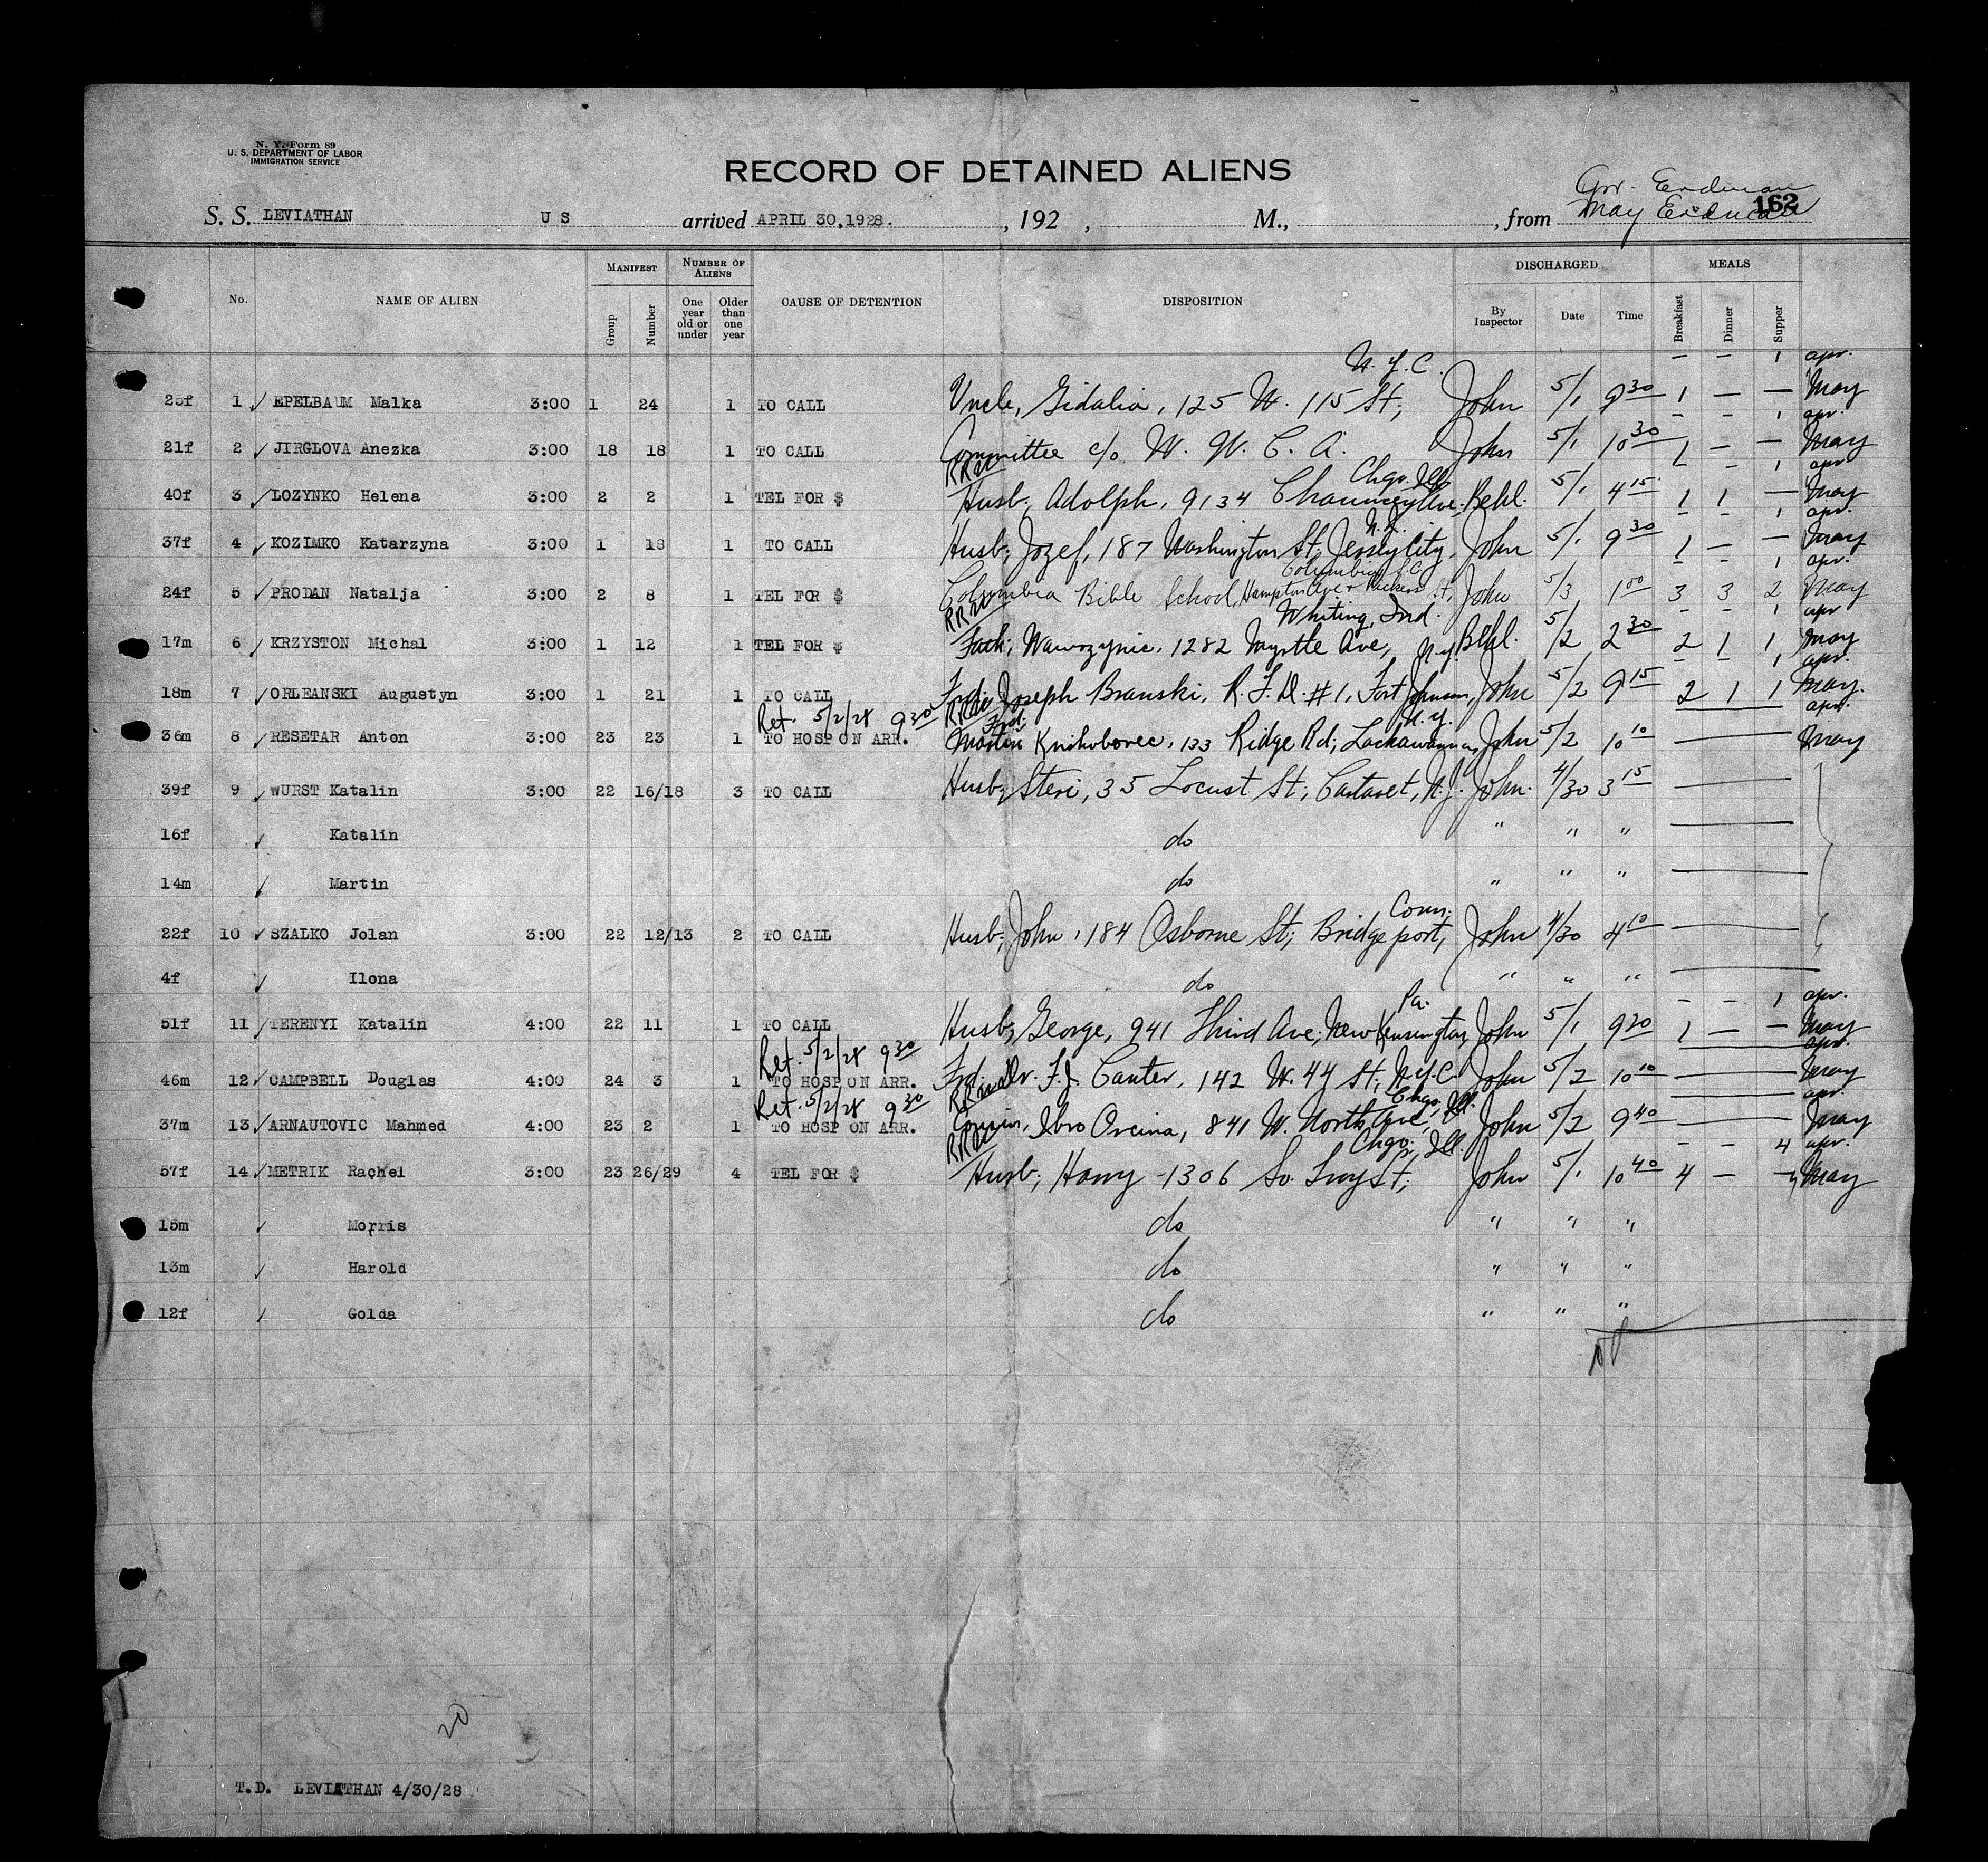 N. Y. Form 89
U. S. DEPARTMENT OF LABOR
IMMIGRATION SERVICE
RECORD OF DETAINED ALIENS
Apr. Erdman
162
S. S. LEVIATHAN U S arrived APRIL 30,1928. , 192 , M., , from May Erdman
No. NAME OF ALIEN MANIFEST Group Number NUMBER OF ALIENS One year old or under Older than one year CAUSE OF DETENTION DISPOSITION DISCHARGED By Inspector Date Time MEALS Breakfast Dinner Supper
N.Y.C. – – 1 apr.
25f 1 ✓ EPELBAUM Malka 3:00 1 24 1 TO CALL Uncle, Gidalia, 125 W. 115 St, John 5/1 9 30 1 – – May
– – 1 apr.
21f 2 ✓ JIRGLOVA Anezka 3:00 18 18 1 TO CALL Committee c/o W. W. C. A. John 5/1 10 30 1 – – May
Chgo. Ill – – 1 apr
40f 3 ✓ LOZYNKO Helena 3:00 2 2 1 TEL FOR $ Husb; Adolph, 9134 Chauncey Ave; Behl. 5/1 4 15 1 1 – May
N.J. – – 1 apr.
37f 4 ✓ KOZIMKO Katarzyna 3:00 1 18 1 TO CALL Husb; Jozef, 187 Washington St; Jersey City, John 5/1 9 30 1 – – May
Columbia S.C. – – 1 apr.
24f 5 ✓ PRODAN Natalja 3:00 2 8 1 TEL FOR $ Columbia Bible School, Hampton Ave + Pickens St, John 5/3 1 00 3 3 2 May
Whiting, Ind. – – 1 apr
17m 6 ✓ KRZYSTON Michal 3:00 1 12 1 TEL FOR $ Fath; Wawrzynic, 1282 Myrtle Ave, Behl. 5/2 2 30 2 1 1 May
N.Y. – – 1 apr.
18m 7 ✓ ORLEANSKI Augustyn 3:00 1 21 1 TO CALL Frd; Joseph Branski, R. F. D. #1, Fort Johnson, John 5/2 9 15 2 1 1 May.
Ret. 5/2/28 9 30 Frd; N.Y. apr.
36m 8 ✓ RESETAR Anton 3:00 23 23 1 TO HOSP ON ARR. Martin 133 Ridge Rd; Lackawanna, John 5/2 10 10 May
39f 9 ✓ WURST Katalin 3:00 22 16/18 3 TO CALL Husb; Steri, 35 Locust St; Cartaret, N.J. John. 4/30 3 15
16f ✓ Katalin do " " "
14m ✓ Martin do " " "
Conn.
22f 10 ✓ SZALKO Jolan 3:00 22 12/13 2 TO CALL Husb; John, 184 Osborne St; Bridgeport, John 4/30 4 10
4f ✓ Ilona do " " "
Pa. – – 1 apr.
51f 11 ✓ TERENYI Katalin 4:00 22 11 1 TO CALL Husb; George, 941 Third Ave; New Kensington, John 5/1 9 20 1 – – May
Ret. 5/2/28 9 30 apr.
46m 12 ✓ CAMPBELL Douglas 4:00 24 3 1 TO HOSP ON ARR. Frd. Dr. F.J. Canter, 142 W. 44 St; N.Y.C. John 5/2 10 10 May
Ret. 5/2/28 9 30 Chgo, Ill. apr.
37m 13 ✓ ARNAUTOVIC Mahmed 4:00 23 2 1 TO HOSP ON ARR. Cousin, Ibro Orcina, 841 W. North Ave, John 5/2 9 40 May
Chgo. Ill. – – 4 apr.
57f 14 ✓ METRIK Rachel 3:00 23 26/29 4 TEL FOR $ Husb; Harry - 1306 So. Troy St, John 5/1 10 40 4 – – May
15m ✓ Morris do " " "
13m ✓ Harold do " " "
12f ✓ Golda do " " "
20
T.D. LEVIATHAN 4/30/28